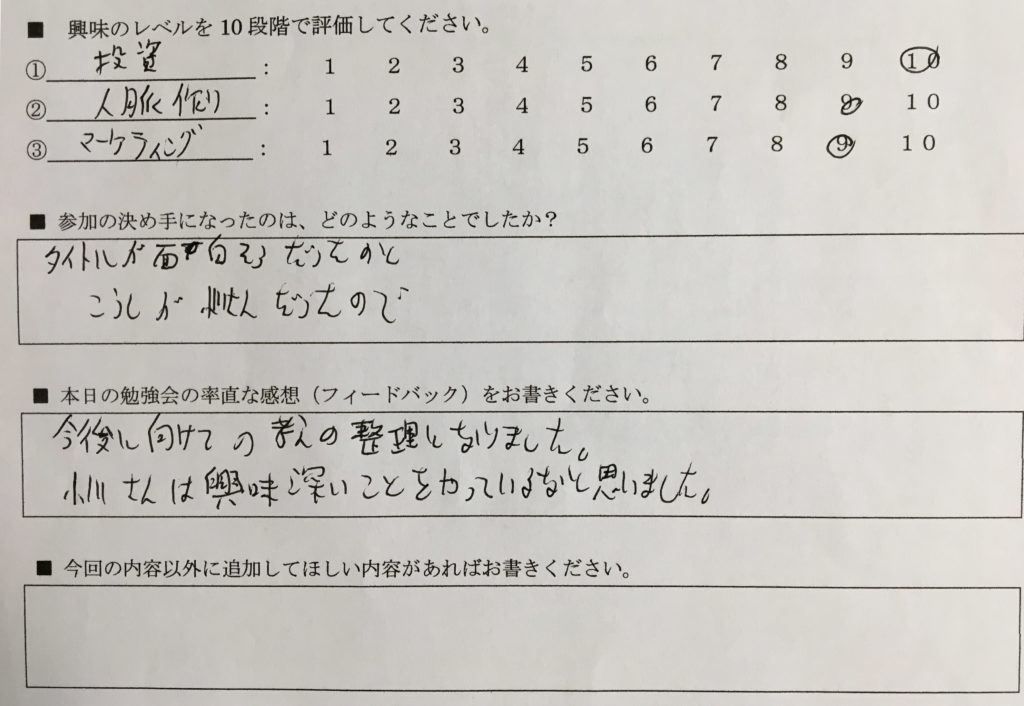 ■ 興味のレベルを10段階で評価してください。
① 投資 : 1 2 3 4 5 6 7 8 9 10
② 人脈作り : 1 2 3 4 5 6 7 8 9 10
③ マーケティング : 1 2 3 4 5 6 7 8 9 10
■ 参加の決め手になったのは、どのようなことでしたか？
タイトルが面白そうだったのと
こうしが小川さんだったので
■ 本日の勉強会の率直な感想（フィードバック）をお書きください。
今後に向けての考えの整理になりました。
小川さんは興味深いことをやっているなと思いました。
■ 今回の内容以外に追加してほしい内容があればお書きください。